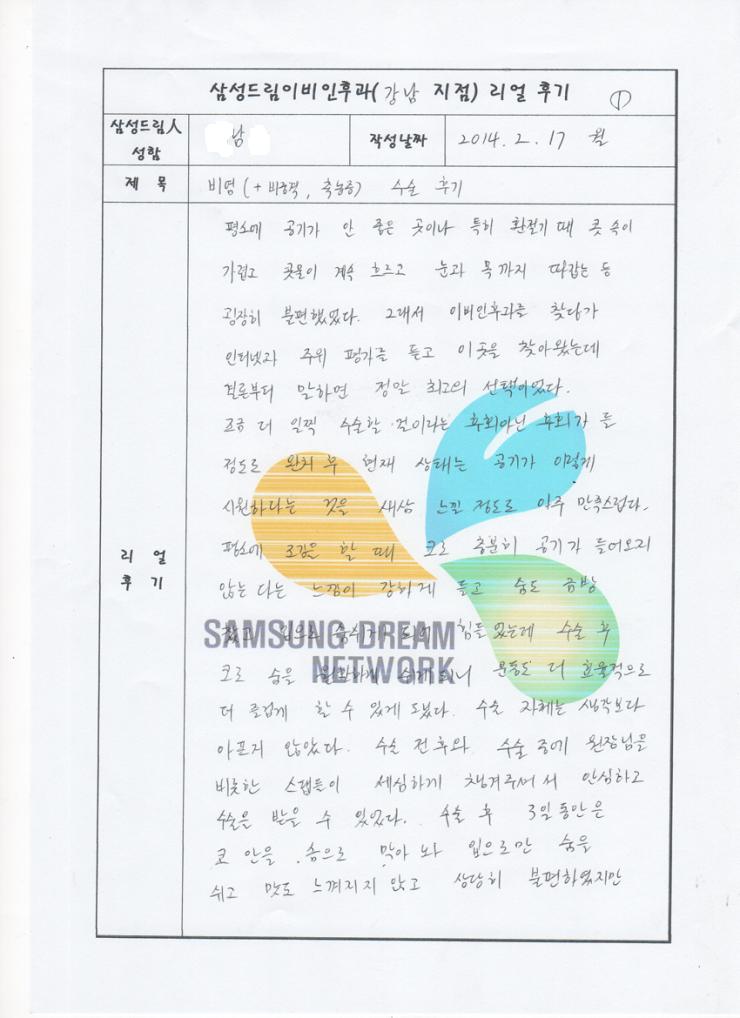 삼성드림이비인후과(강남 지점) 리얼 후기 ①
삼성드림人
성함
남
작성날짜
2014. 2. 17 월
제 목
비염 (+ 비중격, 축농증) 수술 후기
리 얼
후 기
평소에 공기가 안 좋은 곳이나 특히 환절기 때 콧 속이
가렵고 콧물이 계속 흐르고 눈과 목까지 따갑는 등
굉장히 불편했었다. 그래서 이비인후과를 찾다가
인터넷과 주위 평가를 듣고 이곳을 찾아왔는데
결론부터 말하면 정말 최고의 선택이었다.
조금 더 일찍 수술할 걸이라는 후회아닌 후회가 들
정도로 완치 후 현재 상태는 공기가 이렇게
시원하다는 것을 새삼 느낄 정도로 아주 만족스럽다.
평소에 조깅을 할 때 코로 충분히 공기가 들어오지
않는 다는 느낌이 강하게 들고 숨도 금방
찼고 입으로 숨쉬게 되어 힘들었는데 수술 후
코로 숨을 원활하게 쉬게 되니 운동도 더 효율적으로
더 즐겁게 할 수 있게 되었다. 수술 자체는 생각보다
아프지 않았다. 수술 전후와 수술 중에 원장님을
비롯한 스탭들이 세심하게 챙겨주셔서 안심하고
수술을 받을 수 있었다. 수술 후 3일 동안은
코 안을 솜으로 막아 놔 입으로만 숨을
쉬고 맛도 느껴지지 않고 상당히 불편하였지만
SAMSUNG DREAM
NETWORK